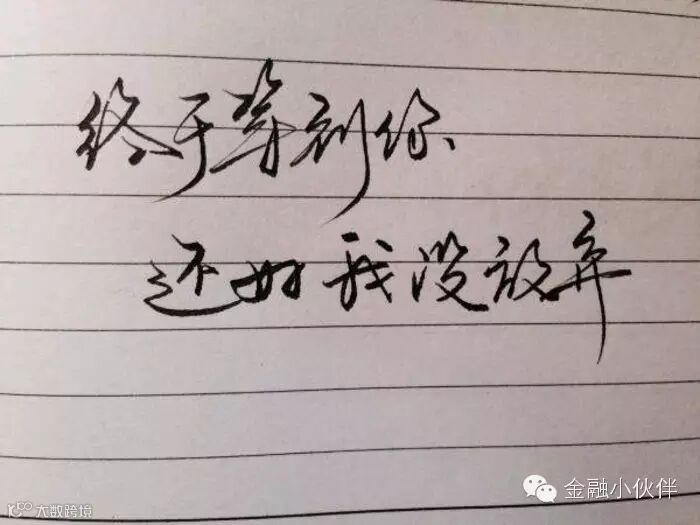 终于等到你
还好我没放弃
金融小伙伴
大数跨境